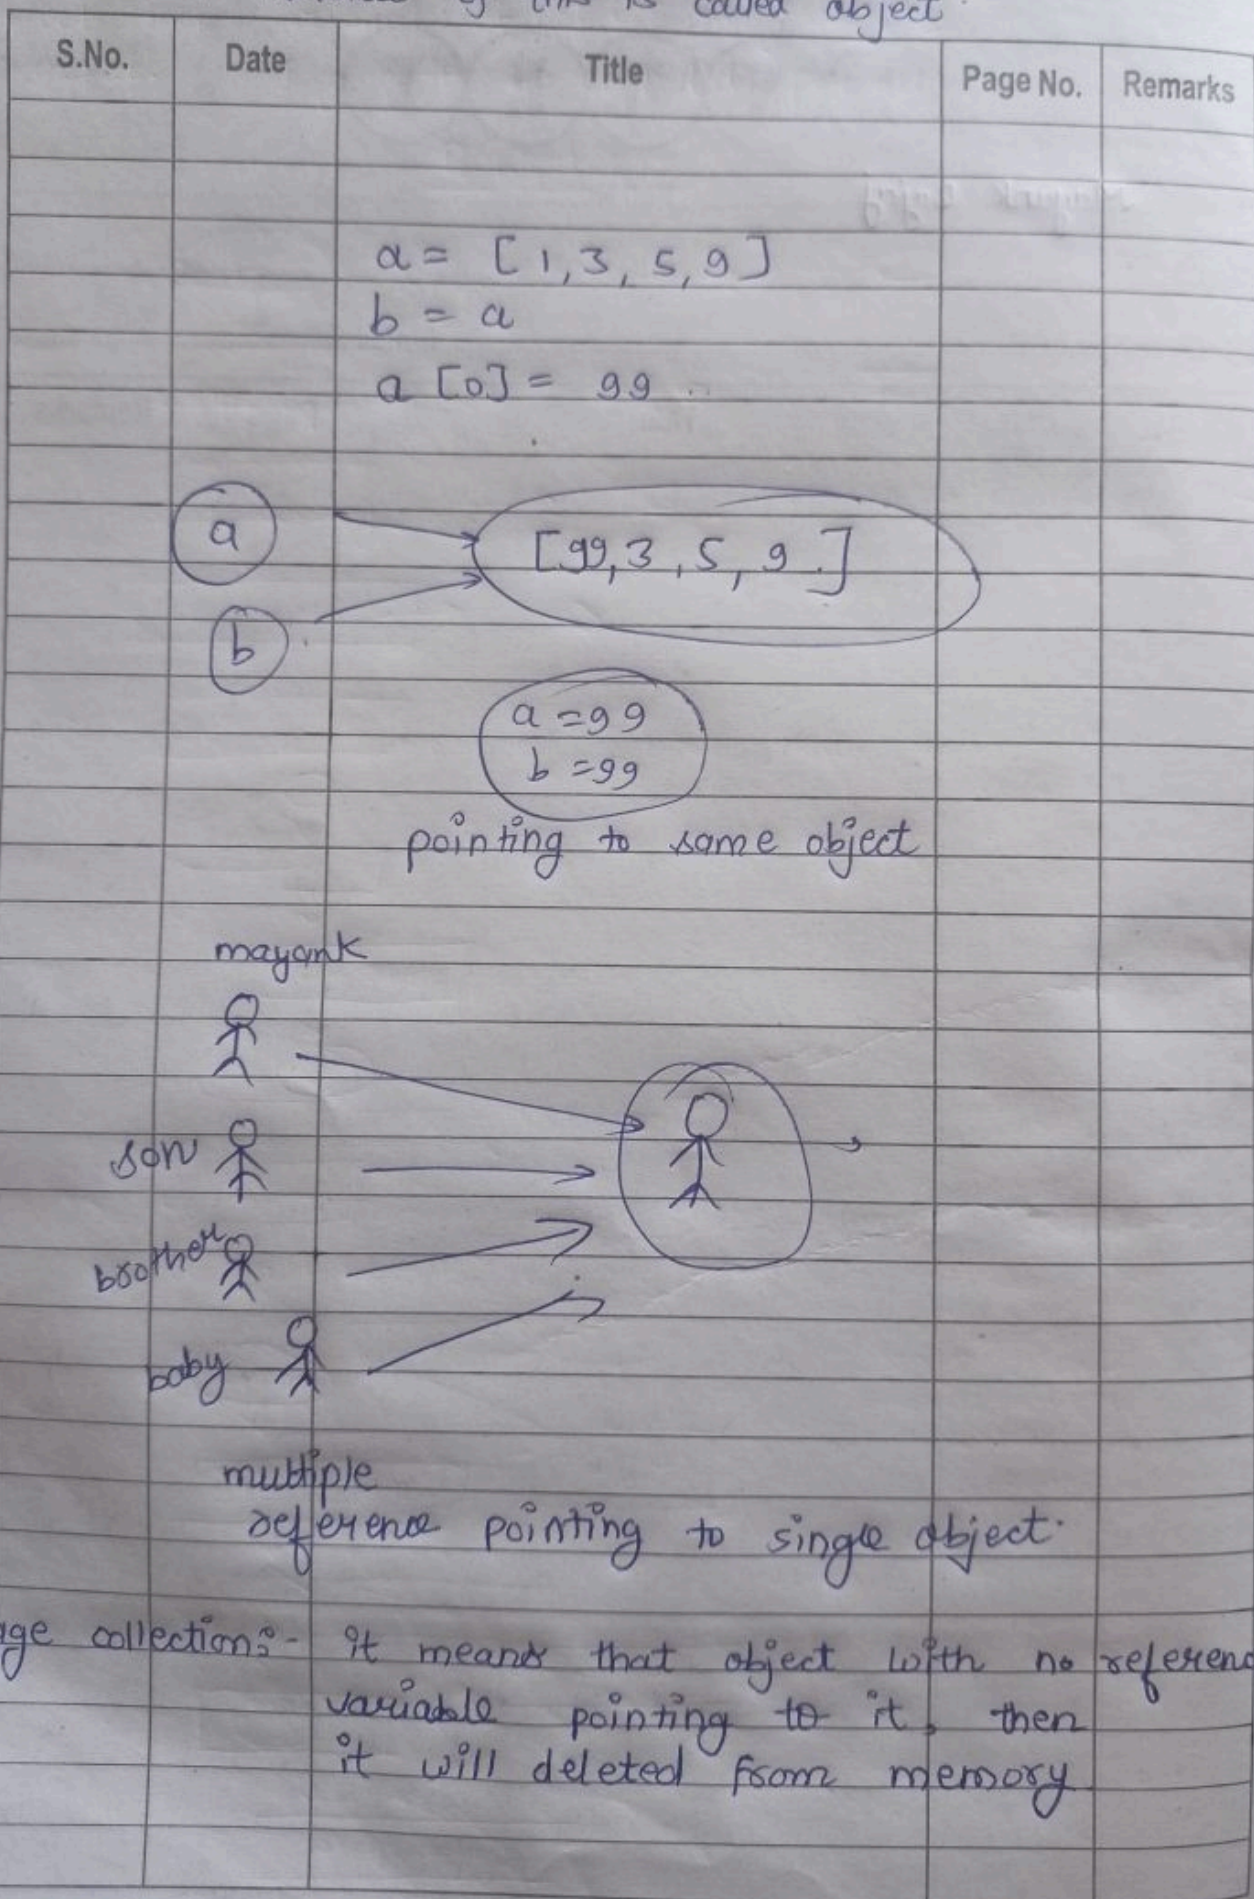 this is called object
S.No. Date Title Page No. Remarks
a = [1,3,5,9]
b = a
a[0] = 99
a
b
[99,3,5,9]
a = 99
b = 99
pointing to same object
mayank
son
brother
baby
multiple
reference pointing to single object.
collection:- it means that object with no
variable pointing to it, then
it will deleted from memory